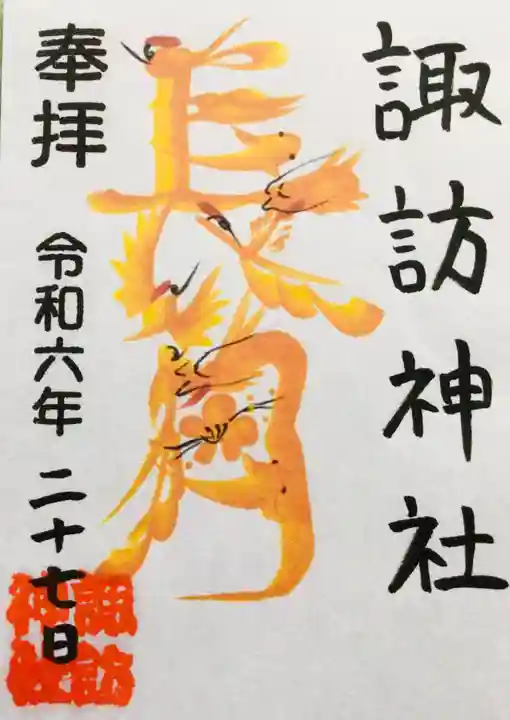 諏訪神社
長月
奉拝
令和六年 二十七日
諏訪
神社